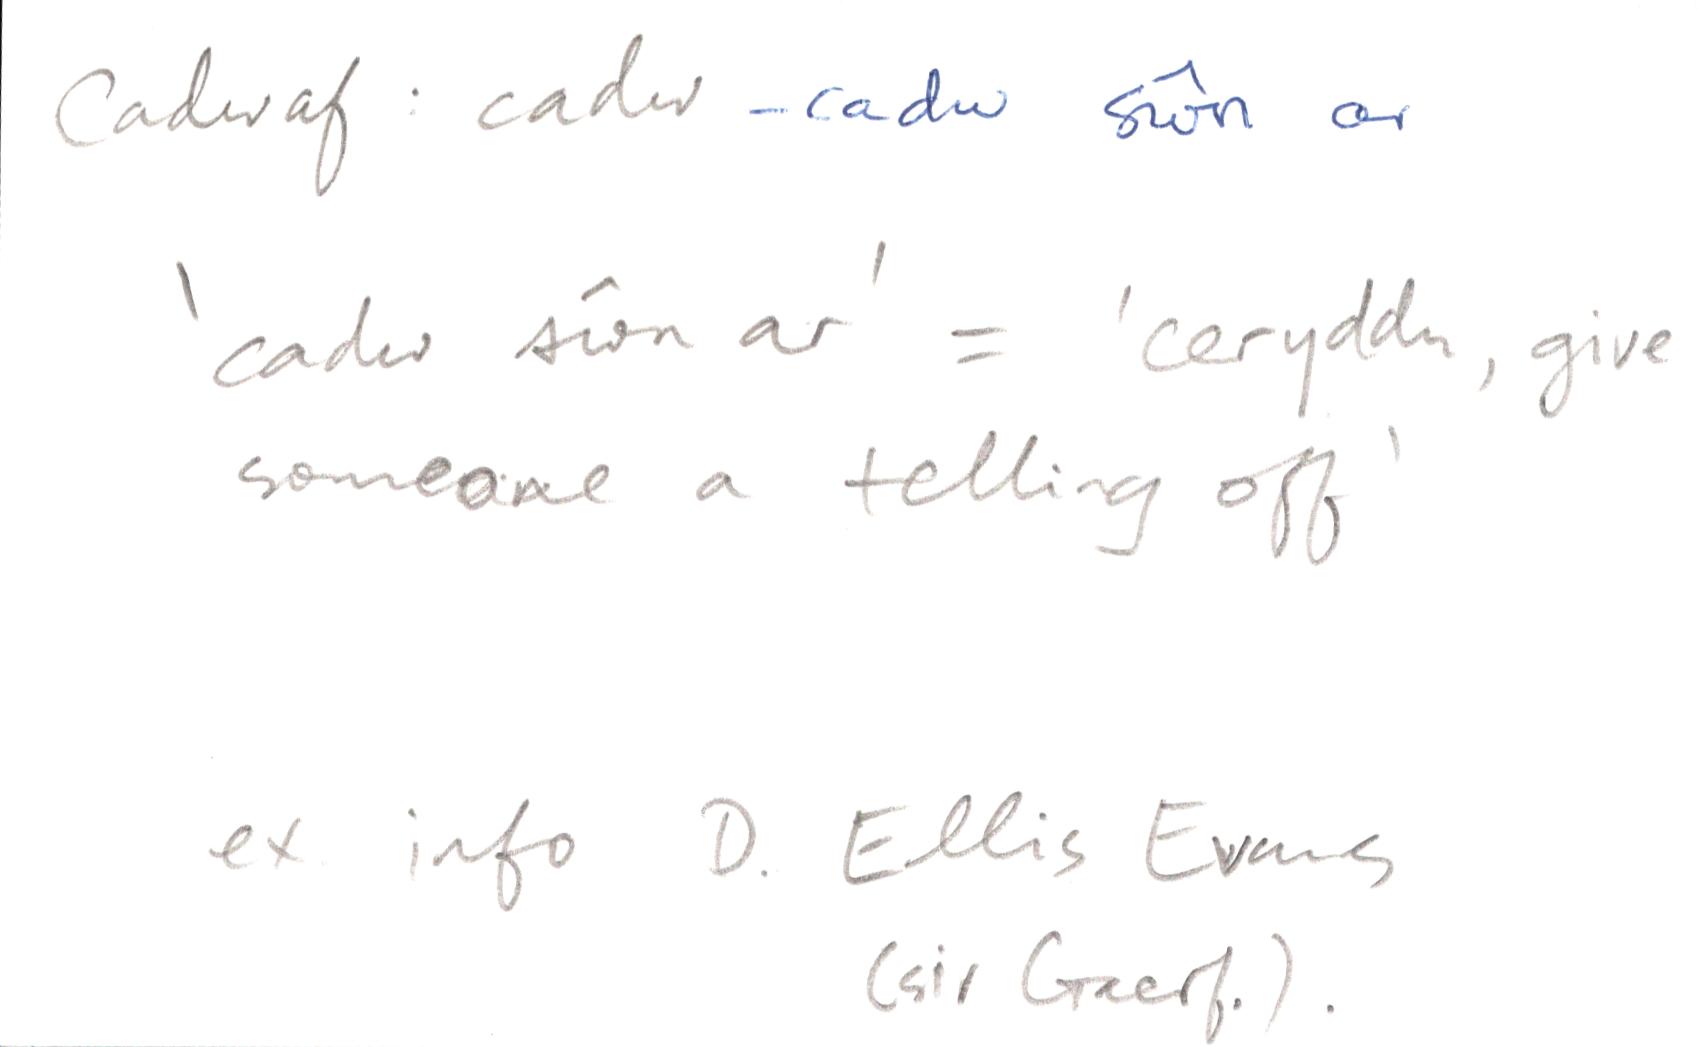 Cadwaf : cadw – cadw sŵn ar
'cadw sŵn ar' = 'ceryddu, give
someone a telling off'
ex info D. Ellis Evans
(sir Gaerf.).